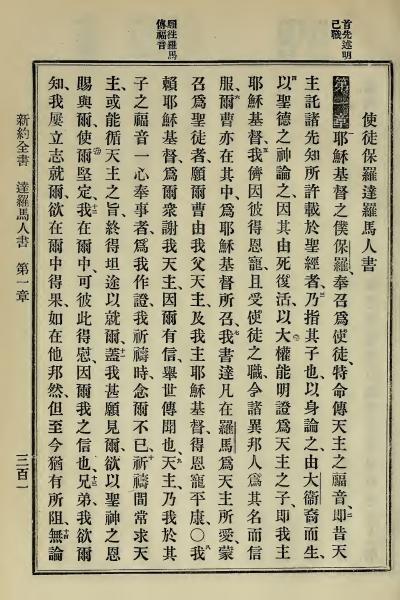 首先述明
己職
願往羅馬
傳福音
使徒保羅達羅馬人書
第一章耶穌基督之僕保羅、奉召爲使徒、特命傳天主之福音、二卽昔天
主託諸先知所許載於聖經者、三乃指其子也、以身論之、由大衞裔而生、
四以聖德之神論之、因其由死復活、以大權能明證爲天主之子、卽我主
耶穌基督、五我儕因彼得恩寵、且受使徒之職、令諸異邦人、爲其名而信
服、六爾曹亦在其中、爲耶穌基督所召、七我書達凡在羅馬、爲天主所愛、蒙
召爲聖徒者、願爾曹由我父天主、及我主耶穌基督、得恩寵平康、〇八我
賴耶穌基督、爲爾衆謝我天主、因爾有信、舉世傳聞也、九天主、乃我於其
子之福音、一心奉事者、爲我作證、我祈禱時、念爾不已、十祈禱間、常求天
主、或能循天主之旨、終得坦途以就爾、十一蓋我甚願見爾、欲以聖神之恩
賜與爾、使爾堅定、十二我在爾中、可彼此得慰、因爾我之信也、十三兄弟、我欲爾
知、我屢立志就爾、欲在爾中得果、如在他邦然、但至今猶有所阻、無論
新約全書　達羅馬人書　第一章　三百一